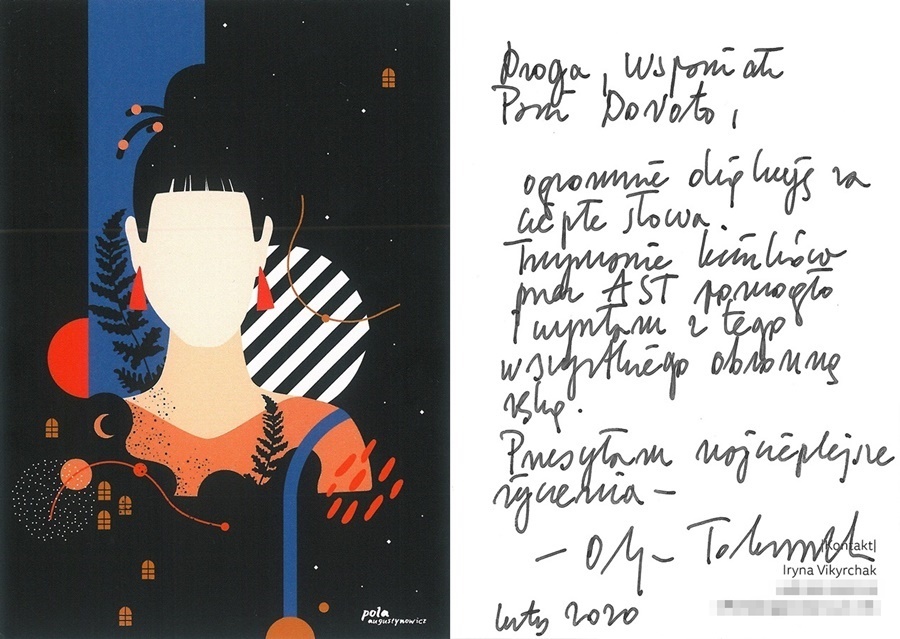 pola
augustynowicz
Droga, Wspaniała
Pani Doroto,
ogromnie dziękuję za
ciepłe słowa.
Trzymanie kciuków
przez AST pomogło
i wyszłam z tego
wszystkiego obronną
ręką.
Przesyłam najcieplejsze
życzenia –
– Olga Tokarczuk
|Kontakt|
Iryna Vikyrchak
luty 2020